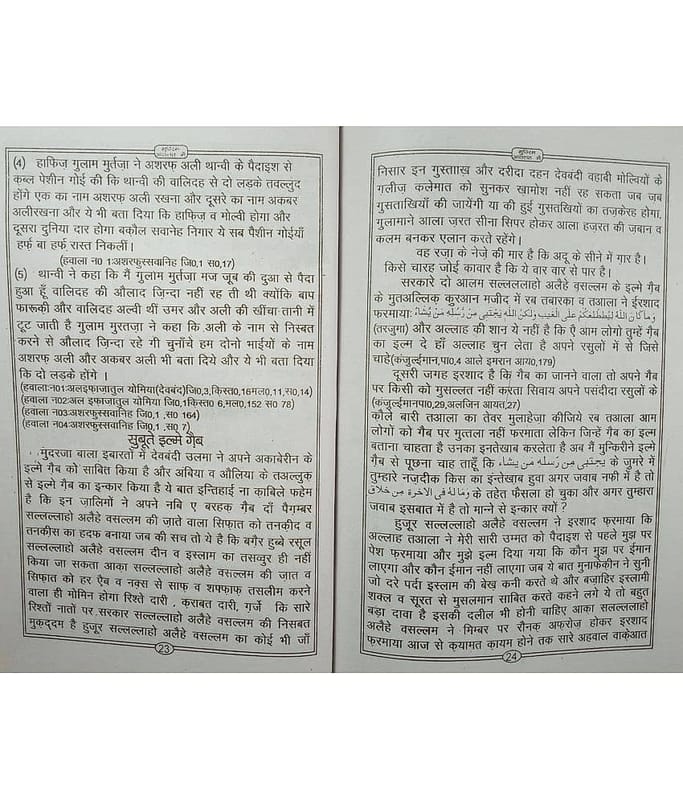 (4) हाफिज़ गुलाम मुर्तज़ा ने अशरफ़ अली थान्वी के पैदाइश से
कब्ल पेशीन गोई की कि थान्वी की वालिदह से दो लड़के तवल्लुद
होंगे एक का नाम अशरफ़ अली रखना और दूसरे का नाम अकबर
अलीरखना और ये भी बता दिया कि हाफिज़ व मोल्वी होगा और
दूसरा दुनिया दार होगा बकौल सवानेह निगार ये सब पैशीन गोईयाँ
हर्फ़ बा हर्फ़ रास्त निकलीं।
(हवाला न0 1:अशरफुस्सवानिह जि0,1 स0,17)
(5) थान्वी ने कहा कि मैं गुलाम मुर्तज़ा मज जूब की दुआ से पैदा
हुआ हूँ वालिदह की औलाद ज़िन्दा नहीं रह ती थी क्योंकि बाप
फारूकी और वालिदह अल्वी थीं उमर और अली की खींचा तानी में
टूट जाती है गुलाम मुरतज़ा ने कहा कि अली के नाम से निस्बत
करने से औलाद ज़िन्दा रहे गी चुनाँचे हम दोनो भाईयों के नाम
अशरफ़ अली और अकबर अली भी बता दिये और ये भी बता दिया
कि दो लड़के होंगे ।
(हवाला:न01:अलइफाजातुल योमिया(देवबंद)जि0,3,किस्त0,16मल0,11,स0,14)
(हवाला,न02:अल इफाजातुल योमिया जि01,किस्त0 6,मल0,152 स0 78)
(हवाला न03:अशरफुस्सवानिह जि0,1 ,स0 164)
(हवाला न04:अशरफुस्सवानिह जि0,1 ,स0 7)
सुबूते इल्मे ग़ैब
मुंदरजा बाला इबारतों में देवबंदी उलमा ने अपने अकाबेरीन के
इल्मे ग़ैब को साबित किया है और अंबिया व औलिया के तअल्लुक़
से इल्मे ग़ैब का इन्कार किया है ये बात इन्तिहाई ना क़ाबिले फहेम
है कि इन ज़ालिमों ने अपने नबि ए बरहक़ ग़ैब दाँ पैग़म्बर
सल्लल्लाहो अलैहे वसल्लम की ज़ाते वाला सिफ़ात को तनक़ीद व
तनक़ीस का हदफ़ बनाया जब की सच तो ये है कि बग़ैर हुब्बे रसूल
सल्लल्लाहो अलैहे वसल्लम दीन व इस्लाम का तसव्वुर ही नहीं
किया जा सकता आक़ा सल्लल्लाहो अलैहे वसल्लम की ज़ात व
सिफ़ात को हर ऐब व नक्स से साफ़ व शफ्फ़ाफ़ तसलीम करने
वाला ही मोमिन होगा रिश्ते दारी , क़राबत दारी, ग़र्ज़े कि सारे
रिश्तों नातों पर सरकार सल्लल्लाहो अलैहे वसल्लम की निसबत
मुक़द्दम है हुज़ूर सल्लल्लाहो अलैहे वसल्लम का कोई भी जाँ
23
निसार इन गुस्ताख़ और दरीदा दहन देवबंदी वहाबी मोल्वियों के
गलीज़ कलेमात को सुनकर ख़ामोश नहीं रह सकता जब जब
गुसताखियाँ की जायेंगी या की हुई गुसतखियों का तज़केरह होगा,
गुलामाने आला ज़रत सीना सिपर होकर आला हज़रत की ज़बान व
कलम बनकर एलान करते रहेंगे।
वह रज़ा के नेज़े की मार है कि अदू के सीने में ग़ार है।
किसे चारह जोई कावार है कि ये वार वार से पार है।
सरकारे दो आलम सल्लल्लाहो अलैहे वसल्लम के इल्मे ग़ैब
के मुतअल्लिक़ क़ुरआन मजीद में रब तबारका व तआला ने ईरशाद
फ़रमाया: وَمَا كَانَ اللّٰهُ لِيُطْلِعَكُمْ عَلَى الْغَيْبِ وَلٰكِنَّ اللّٰهَ يَجْتَبِىْ مِنْ رُّسُلِهٖ مَنْ يَّشَآءُ
(तरजुमा) और अल्लाह की शान ये नहीं है कि ऐ आम लोगो तुम्हें ग़ैब
का इल्म दे हाँ अल्लाह चुन लेता है अपने रसुलों में से जिसे
चाहे(कंज़ुलईमान,पा0,4 आले इमरान आय0,179)
दूसरी जगह इरशाद है कि ग़ैब का जानने वाला तो अपने ग़ैब
पर किसी को मुसल्लत नहीं करता सिवाय अपने पसंदीदा रसुलों के
(कंज़ुलईमानपा0,29,अलजिन आयत,27)
कौले बारी तआला का तेवर मुलाहेज़ा कीजिये रब तआला आम
लोगों को ग़ैब पर मुत्तला नहीं फरमाता लेकिन जिन्हें ग़ैब का इल्म
बताना चाहता है उनका इनतेखाब करलेता है अब मैं मुन्किरीने इल्मे
ग़ैब से पूछना चाह ताहूँ कि يجتبى من رسله من يشاء के जुमरे में
तुम्हारे नज़दीक किस का इन्तेख़ाब हुवा अगर जवाब नफी में है तो
وماله فى الاخرة من خلاق के तहेत फैसला हो चुका और अगर तुम्हारा
जवाब इसबात में है तो मान्ने से इन्कार क्यों ?
हुज़ूर सल्लल्लाहो अलैहे वसल्लम ने इरशाद फ़रमाया कि
अल्लाह तआला ने मेरी सारी उम्मत को पैदाइश से पहले मुझ पर
पेश फ़रमाया और मुझे इल्म दिया गया कि कौन मुझ पर ईमान
लाएगा और कौन ईमान नहीं लाएगा जब ये बात मुनाफ़ेक़ीन ने सुनी
जो दरे पर्दा इस्लाम की बेख कनी करते थे और बज़ाहिर इस्लामी
शक्ल व सूरत से मुसलमान साबित करते कहने लगे ये तो बहुत
बड़ा दावा है इसकी दलील भी होनी चाहिए आक़ा सल्लल्लाहो
अलैहे वसल्लम ने मिम्बर पर रौनक़ अफ़रोज़ होकर इरशाद
फ़रमाया आज से क़यामत क़ायम होने तक सारे अहवाल वाक़ेआत
24